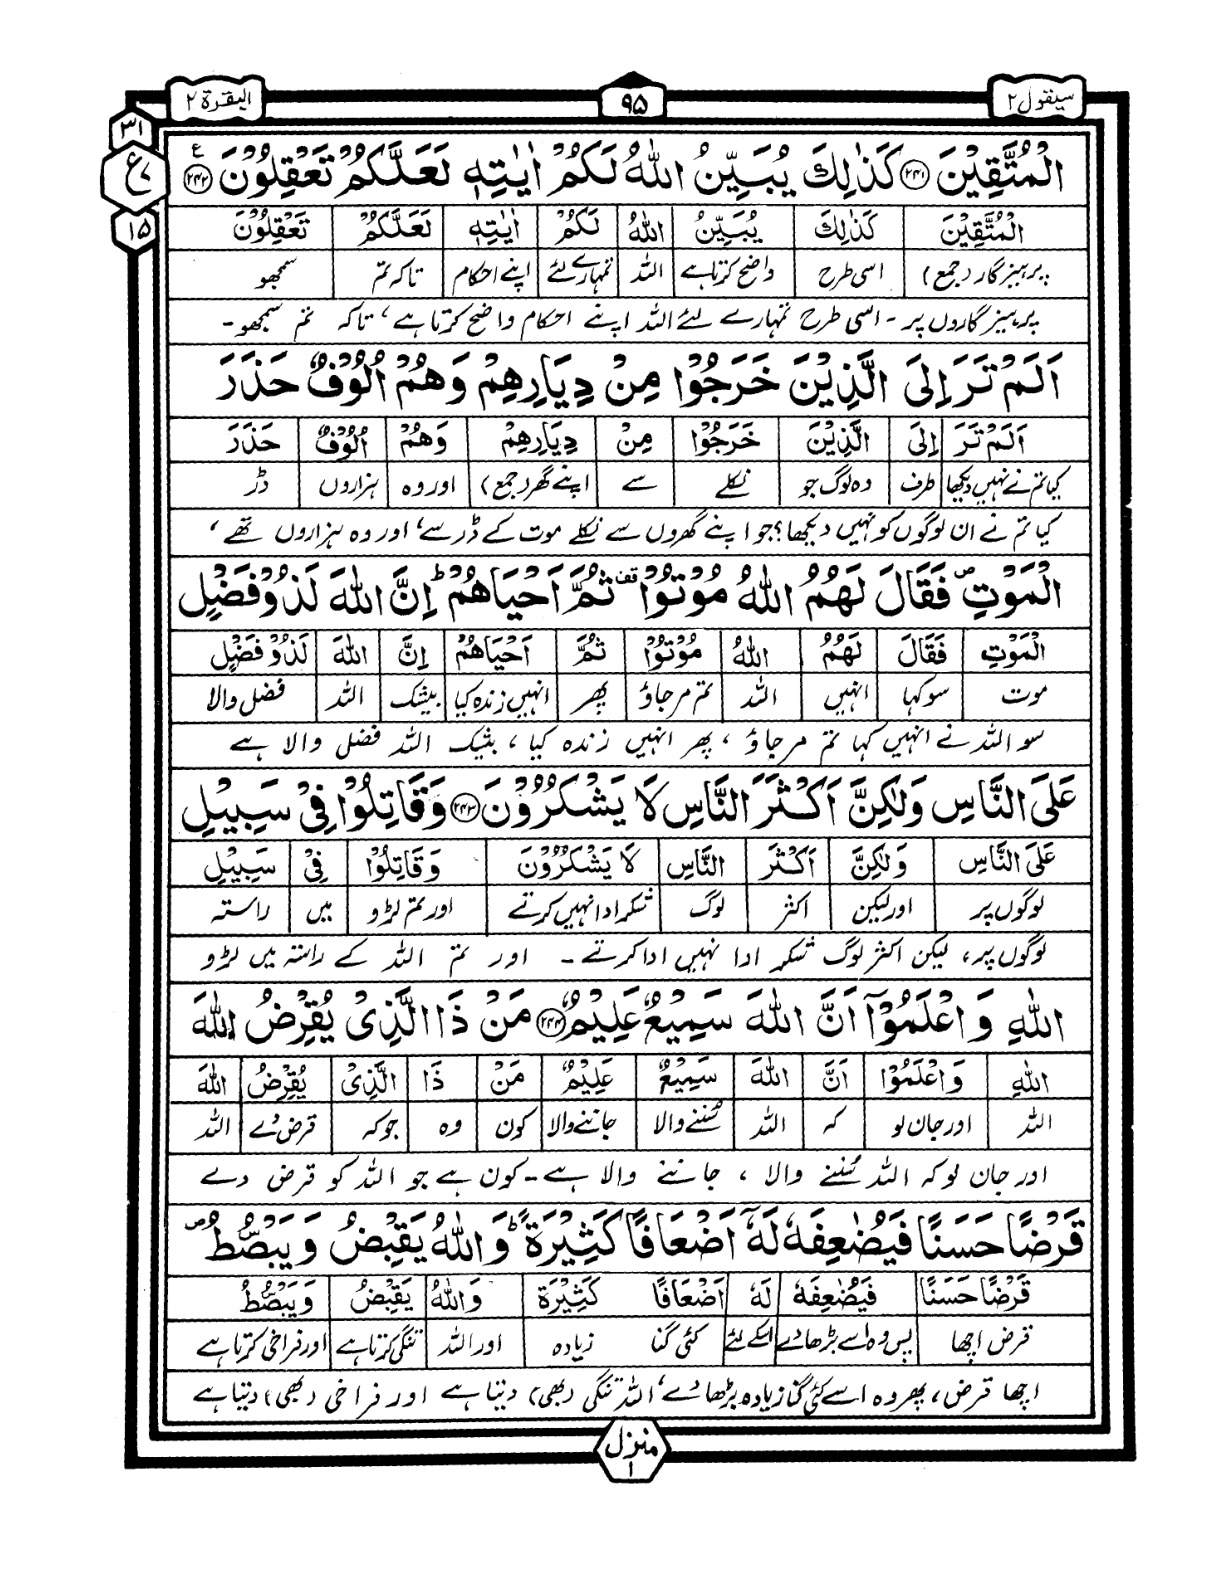 سیقول ۲
۹۵
البقرة ۲
۳۱
ع
۷
۱۵
الْمُتَّقِيْنَ ﴿۲۴۱﴾ كَذٰلِكَ يُبَيِّنُ اللّٰهُ لَكُمْ اٰيٰتِهٖ لَعَلَّكُمْ تَعْقِلُوْنَ ﴿۲۴۲﴾ ع
الْمُتَّقِيْنَ كَذٰلِكَ يُبَيِّنُ اللّٰهُ لَكُمْ اٰيٰتِهٖ لَعَلَّكُمْ تَعْقِلُوْنَ
پرہیزگار (جمع) اسی طرح واضح کرتا ہے اللہ تمہارے لئے اپنے احکام تاکہ تم سمجھو
پرہیزگاروں پر - اسی طرح تمہارے لئے اللہ اپنے احکام واضح کرتا ہے، تاکہ تم سمجھو -
اَلَمْ تَرَ اِلَى الَّذِيْنَ خَرَجُوْا مِنْ دِيَارِهِمْ وَهُمْ اُلُوْفٌ حَذَرَ
اَلَمْ تَرَ اِلَى الَّذِيْنَ خَرَجُوْا مِنْ دِيَارِهِمْ وَهُمْ اُلُوْفٌ حَذَرَ
کیا تم نے نہیں دیکھا طرف وہ لوگ جو نکلے سے اپنے گھر (جمع) اور وہ ہزاروں ڈر
کیا تم نے ان لوگوں کو نہیں دیکھا؟ جو اپنے گھروں سے نکلے موت کے ڈر سے، اور وہ ہزاروں تھے،
الْمَوْتِ ۪ فَقَالَ لَهُمُ اللّٰهُ مُوْتُوْا قف ثُمَّ اَحْيَاهُمْ ؕ اِنَّ اللّٰهَ لَذُوْ فَضْلٍ
الْمَوْتِ فَقَالَ لَهُمُ اللّٰهُ مُوْتُوْا ثُمَّ اَحْيَاهُمْ اِنَّ اللّٰهَ لَذُوْ فَضْلٍ
موت سو کہا انہیں اللہ تم مر جاؤ پھر انہیں زندہ کیا بیشک اللہ فضل والا
سو اللہ نے انہیں کہا تم مر جاؤ، پھر انہیں زندہ کیا، بیشک اللہ فضل والا ہے
عَلَى النَّاسِ وَلٰكِنَّ اَكْثَرَ النَّاسِ لَا يَشْكُرُوْنَ ﴿۲۴۳﴾ وَقَاتِلُوْا فِيْ سَبِيْلِ
عَلَى النَّاسِ وَلٰكِنَّ اَكْثَرَ النَّاسِ لَا يَشْكُرُوْنَ وَقَاتِلُوْا فِيْ سَبِيْلِ
لوگوں پر اور لیکن اکثر لوگ شکر ادا نہیں کرتے اور تم لڑو میں راستہ
لوگوں پر، لیکن اکثر لوگ شکر ادا نہیں ادا کرتے - اور تم اللہ کے راستہ میں لڑو
اللّٰهِ وَاعْلَمُوْٓا اَنَّ اللّٰهَ سَمِيْعٌ عَلِيْمٌ ﴿۲۴۴﴾ مَنْ ذَا الَّذِيْ يُقْرِضُ اللّٰهَ
اللّٰهِ وَاعْلَمُوْٓا اَنَّ اللّٰهَ سَمِيْعٌ عَلِيْمٌ مَنْ ذَا الَّذِيْ يُقْرِضُ اللّٰهَ
اللہ اور جان لو کہ اللہ سننے والا جاننے والا کون وہ جو کہ قرض دے اللہ
اور جان لو کہ اللہ سننے والا، جاننے والا ہے - کون ہے جو اللہ کو قرض دے
قَرْضًا حَسَنًا فَيُضٰعِفَهٗ لَهٗٓ اَضْعَافًا كَثِيْرَةً ؕ وَاللّٰهُ يَقْبِضُ وَيَبْصُّطُ ۪
قَرْضًا حَسَنًا فَيُضٰعِفَهٗ لَهٗ اَضْعَافًا كَثِيْرَةً وَاللّٰهُ يَقْبِضُ وَيَبْصُّطُ
قرض اچھا پس وہ اسے بڑھا دے اسکے لئے کئی گنا زیادہ اور اللہ تنگی کرتا ہے اور فراخی کرتا ہے
اچھا قرض، پھر وہ اسے کئی گنا زیادہ بڑھا دے، اللہ تنگی (بھی) دیتا ہے اور فراخی (بھی) دیتا ہے
منزل
۱